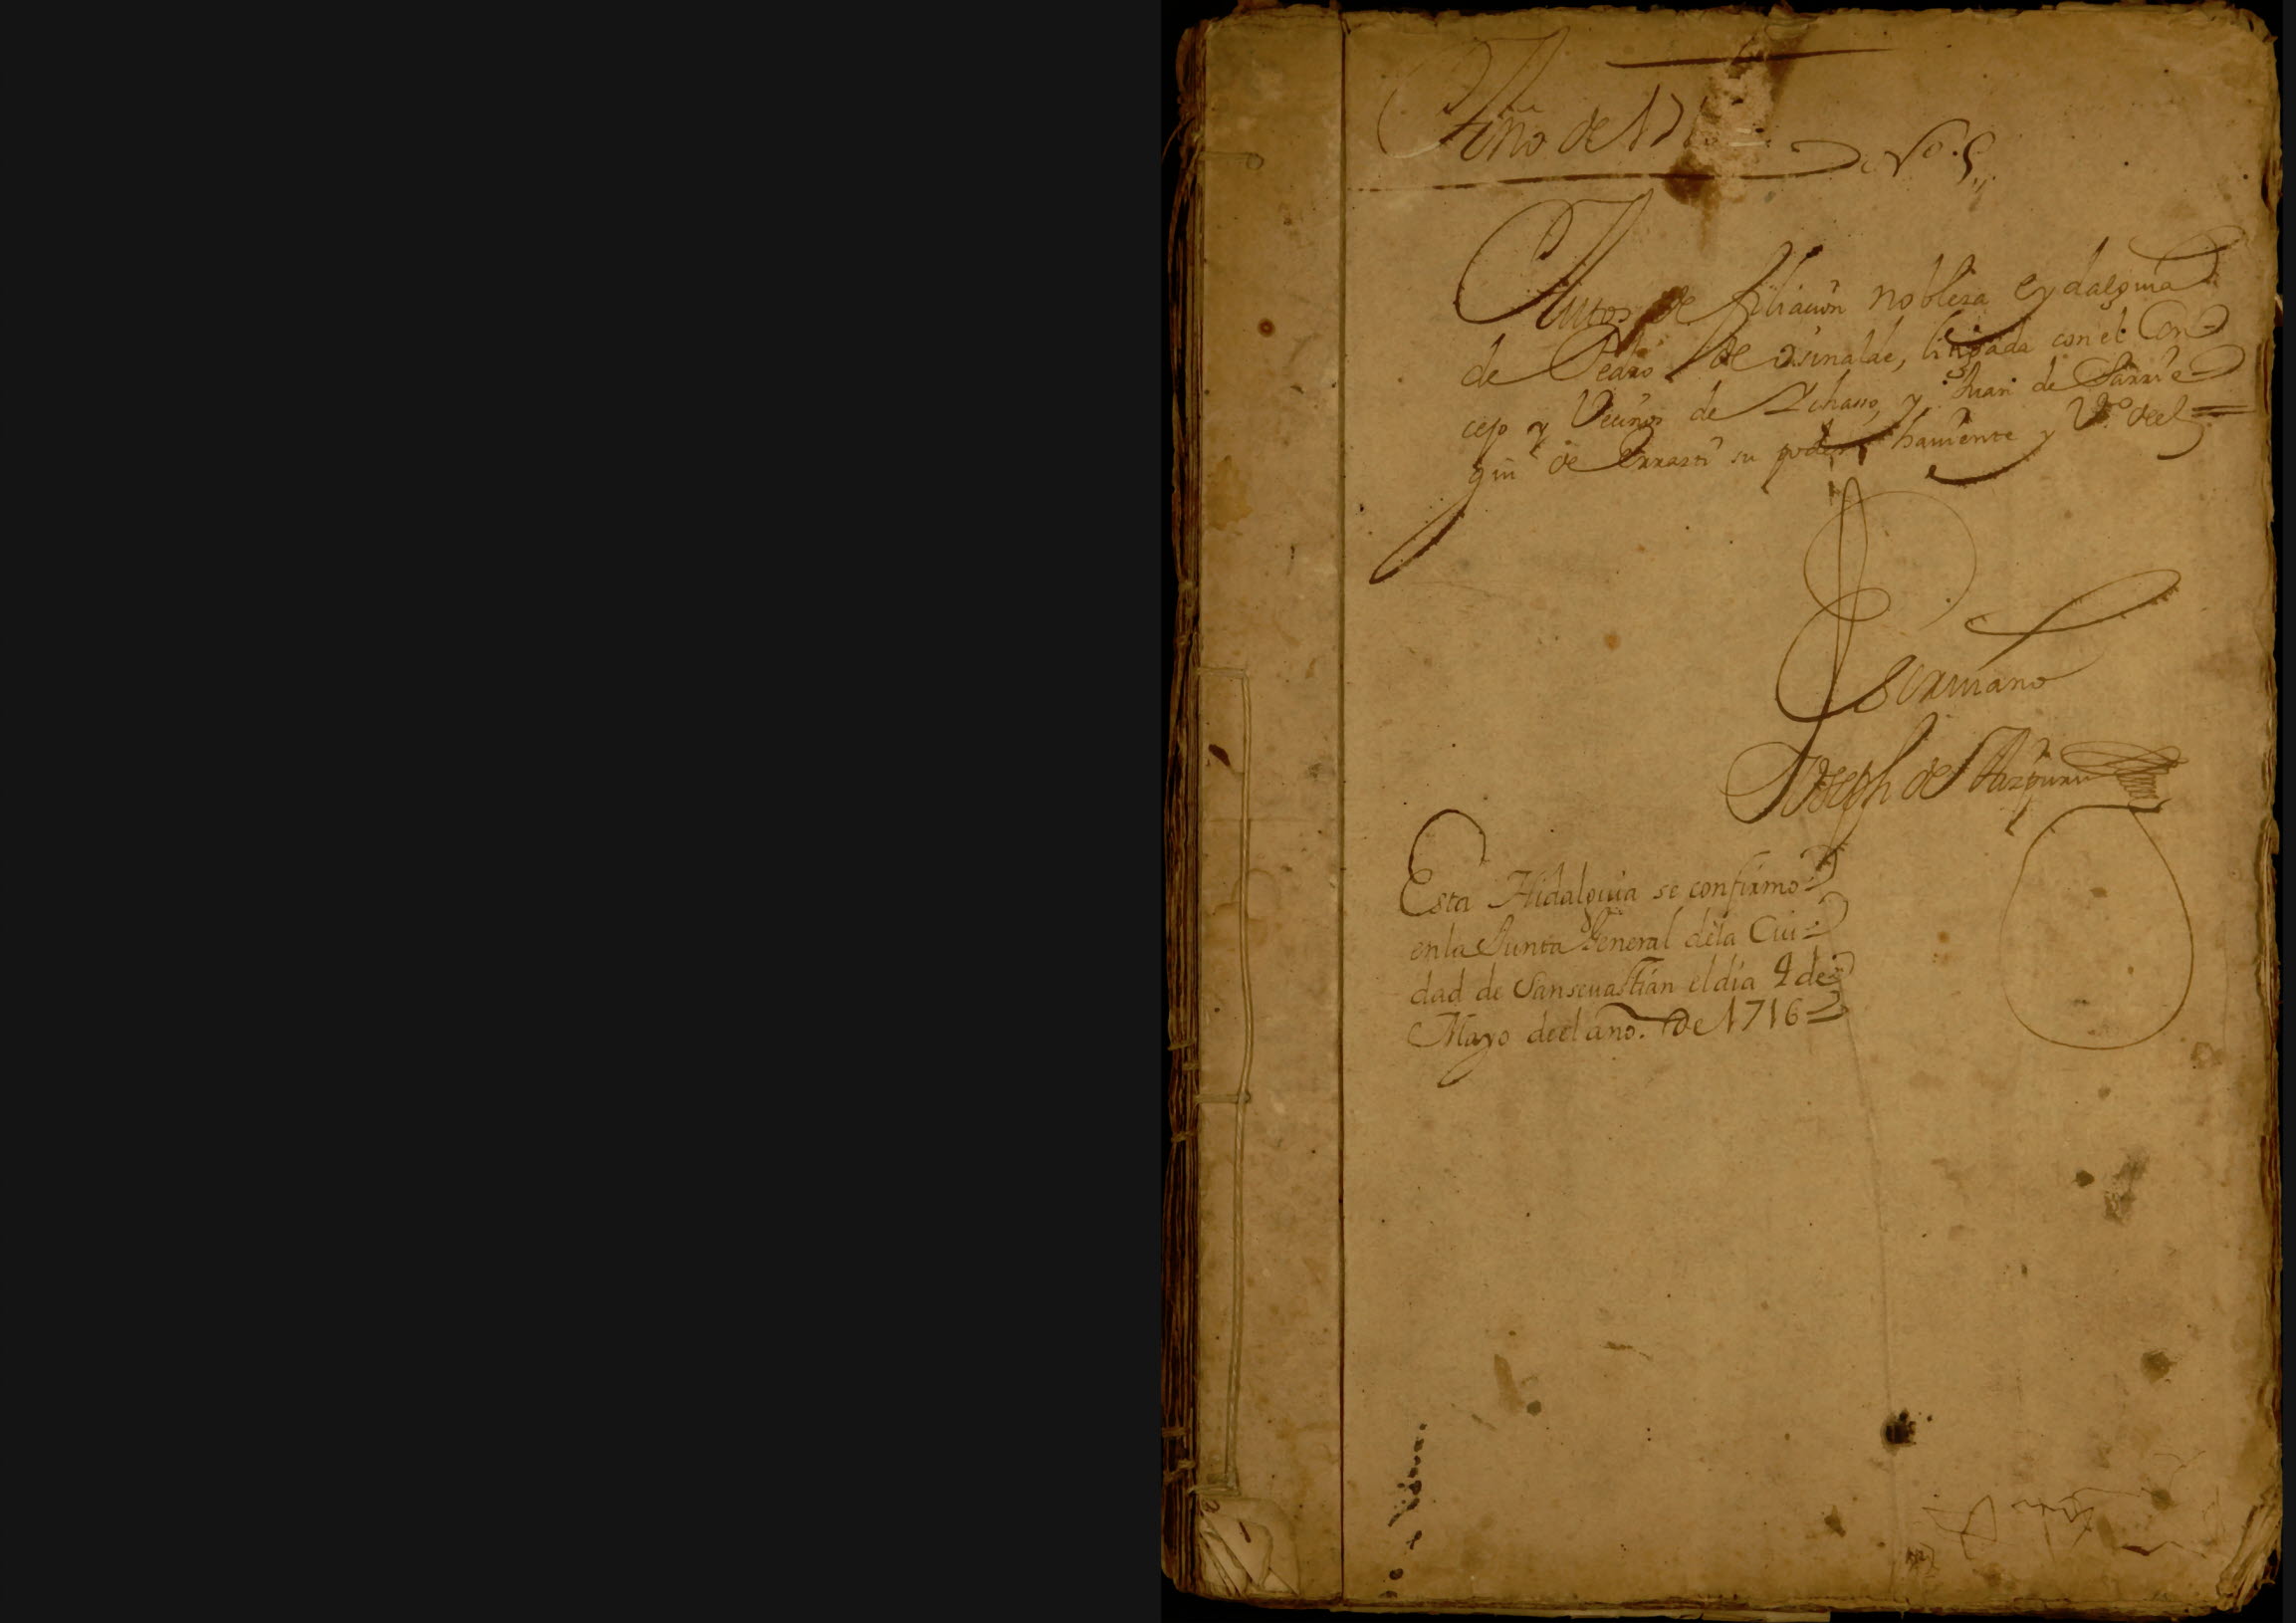 Año de 171
No. 5
Autos de filiacion nobleza eydalguia
de Pedro de litigada con el Con-
cejo y Vecinos de y Juan de Sarrie-
gui de Errazti su y Vº deel
Escriuano
Joseph de Aizpuru
Esta Hidalguia se confirmo
en la Junta General dela Ciu-
dad de Sanseuastian el dia 4 de
Mayo deel año. de 1716